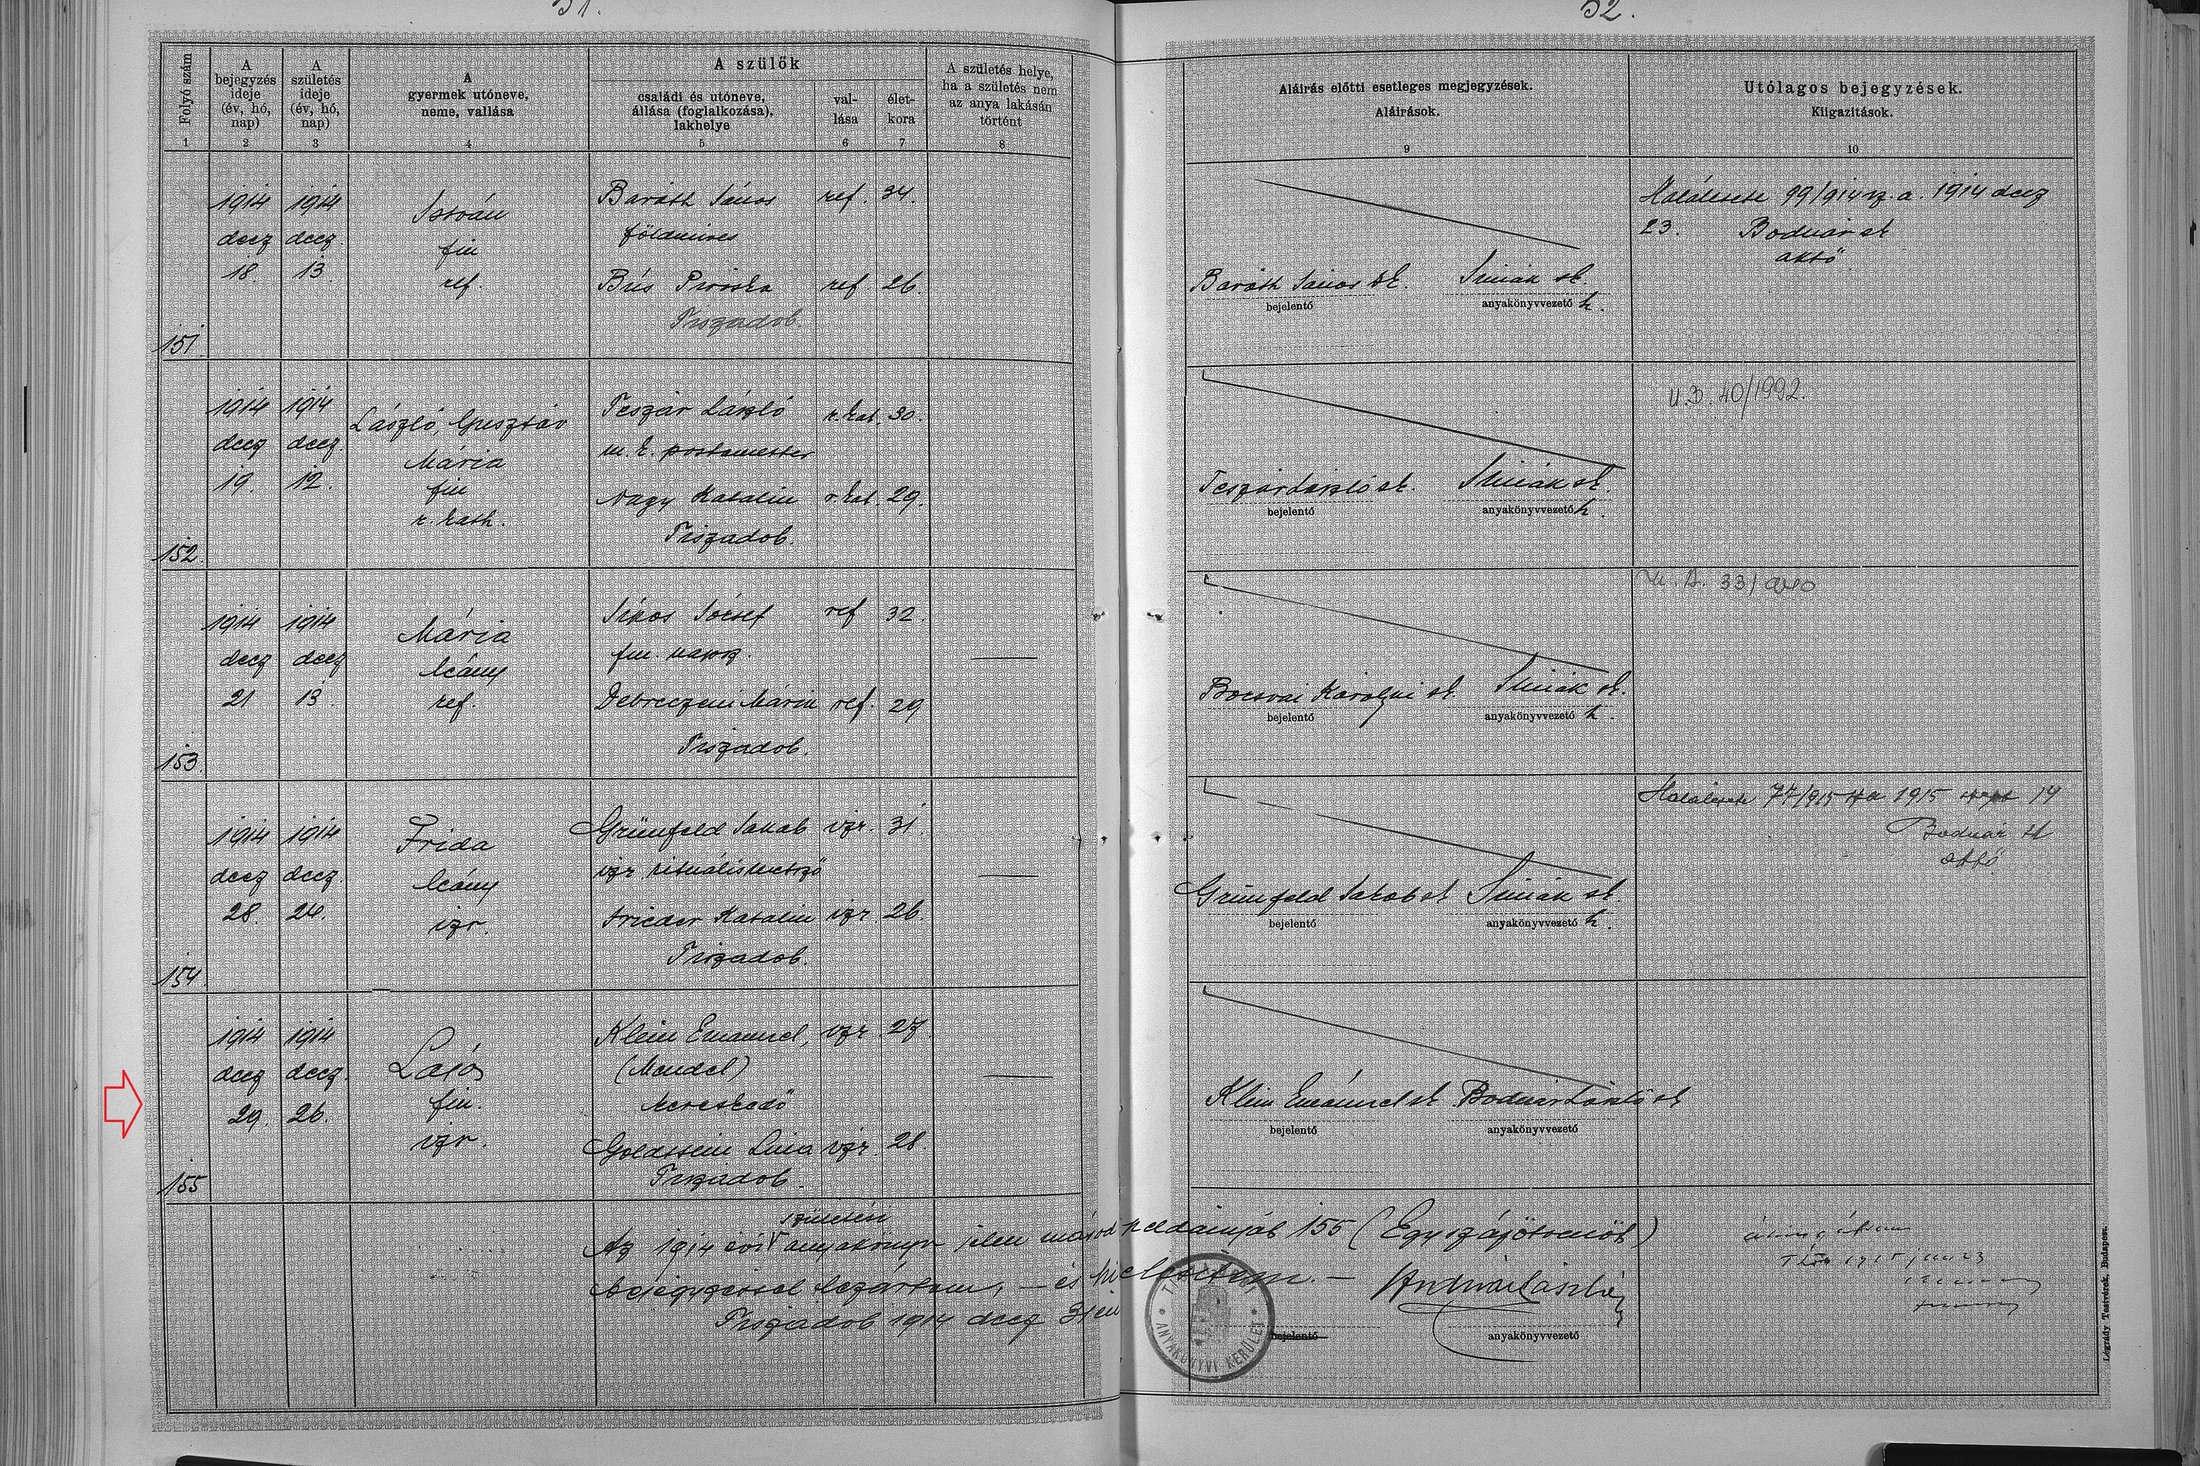 51.
52.
Folyó szám
A bejegyzés ideje (év, hó, nap)
A születés ideje (év, hó, nap)
A gyermek utóneve, neme, vallása
A szülők
családi és utóneve, állása (foglalkozása), lakhelye
val- lása
élet- kora
A születés helye, ha a születés nem az anya lakásán történt
Aláírás előtti esetleges megjegyzések.
Aláírások.
Utólagos bejegyzések.
Kiigazítások.
1 2 3 4 5 6 7 8 9 10
1914 1914 István Baráth János ref. 34.
decz decz. fiu földmives
18. 13. ref. Bús Piroska ref. 26.
Tiszadob.
151.
Baráth János sk. Simák sk.
bejelentő anyakönyvvezető h.
Haláleste 99/914 sz. a. 1914 decz
23. Bodnár sk
aktő
1914 1914 László, Gusztáv Teszár László r. kat. 30.
decz decz. Mária m. k. postamester
19. 12. fiu Nagy Katalin r. kat. 29.
r. kath. Tiszadob.
152
Teszár László sk. Simák sk.
bejelentő anyakönyvvezető h.
U.B. 40/1992.
1914 1914 Mária Sipos József ref 32.
decz decz leány
21 13. ref. Debreczeni Mária ref. 29
Tiszadob.
153.
Bocsvai Károlyi sk. Simák sk.
bejelentő anyakönyvvezető h.
1914 1914 Frida Grünfeld Jakab izr. 31.
decz decz. leány izr rituális metsző
28. 24. izr. Frieder Katalin izr 26
Tiszadob.
154
Grünfeld Jakab sk Simák sk.
bejelentő anyakönyvvezető h.
Haláleste 77/915 sz a 1915 szept 14
Bodnár sk
aktő
1914 1914 Lajos Klein Emanuel, izr. 27.
decz decz. fiu. (Mendel)
29. 26. izr. kereskedő
Goldstein Lina izr. 28.
Tiszadob.
155
Klein Emánuel sk Bodnár László sk
bejelentő anyakönyvvezető
születési
Az 1914 évi anyakönyv jelen másod példányát 155 (Egyszázötvenöt)
bejegyzéssel lezártam, – és hitelesítem. –
Tiszadob 1914 decz 31 én
Bodnár László
bejelentő anyakönyvvezető
ANYAKÖNYVI KERÜLET
Légrády Testvérek, Budapest.